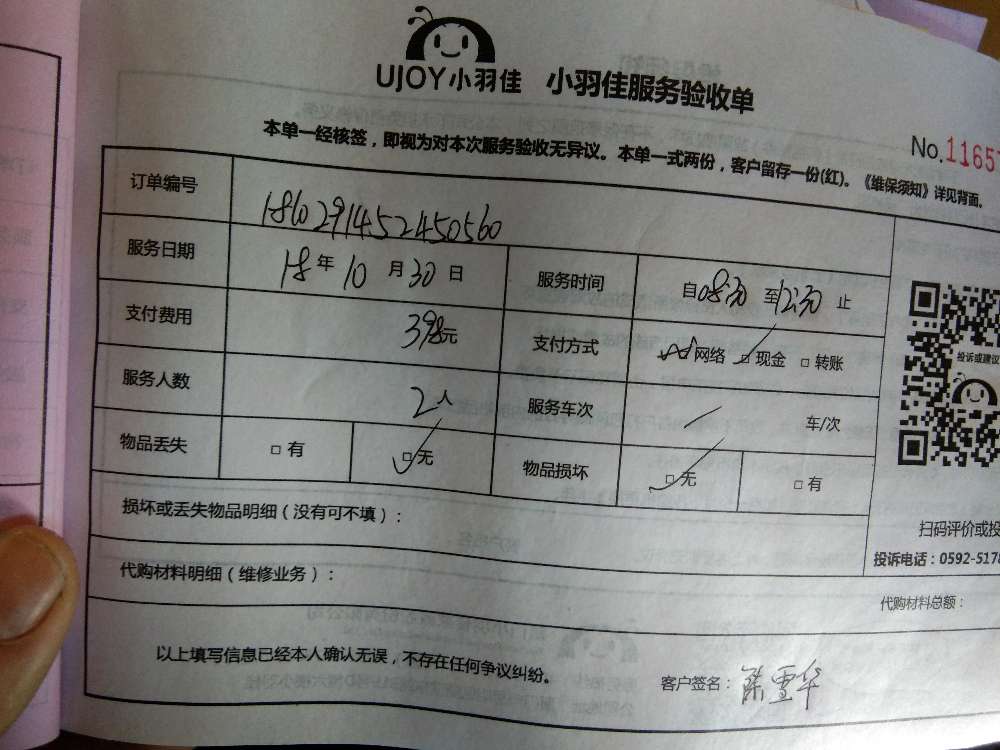 UJOY小羽佳 小羽佳服务验收单
本单一经核签，即视为对本次服务验收无异议。本单一式两份，客户留存一份(红)。《维保须知》详见背面。
No.11657
订单编号 1810291452450560
服务日期 18年10月30日 服务时间 自08:30至12:30止
支付费用 398元 支付方式 网络 □现金 □转账
服务人数 2人 服务车次 车/次
物品丢失 □有 □无 物品损坏 □无 □有
投诉或建议
损坏或丢失物品明细（没有可不填）：
扫码评价或投
投诉电话：0592-5178
代购材料明细（维修业务）：
代购材料总额：
以上填写信息已经本人确认无误，不存在任何争议纠纷。
客户签名： 雪华